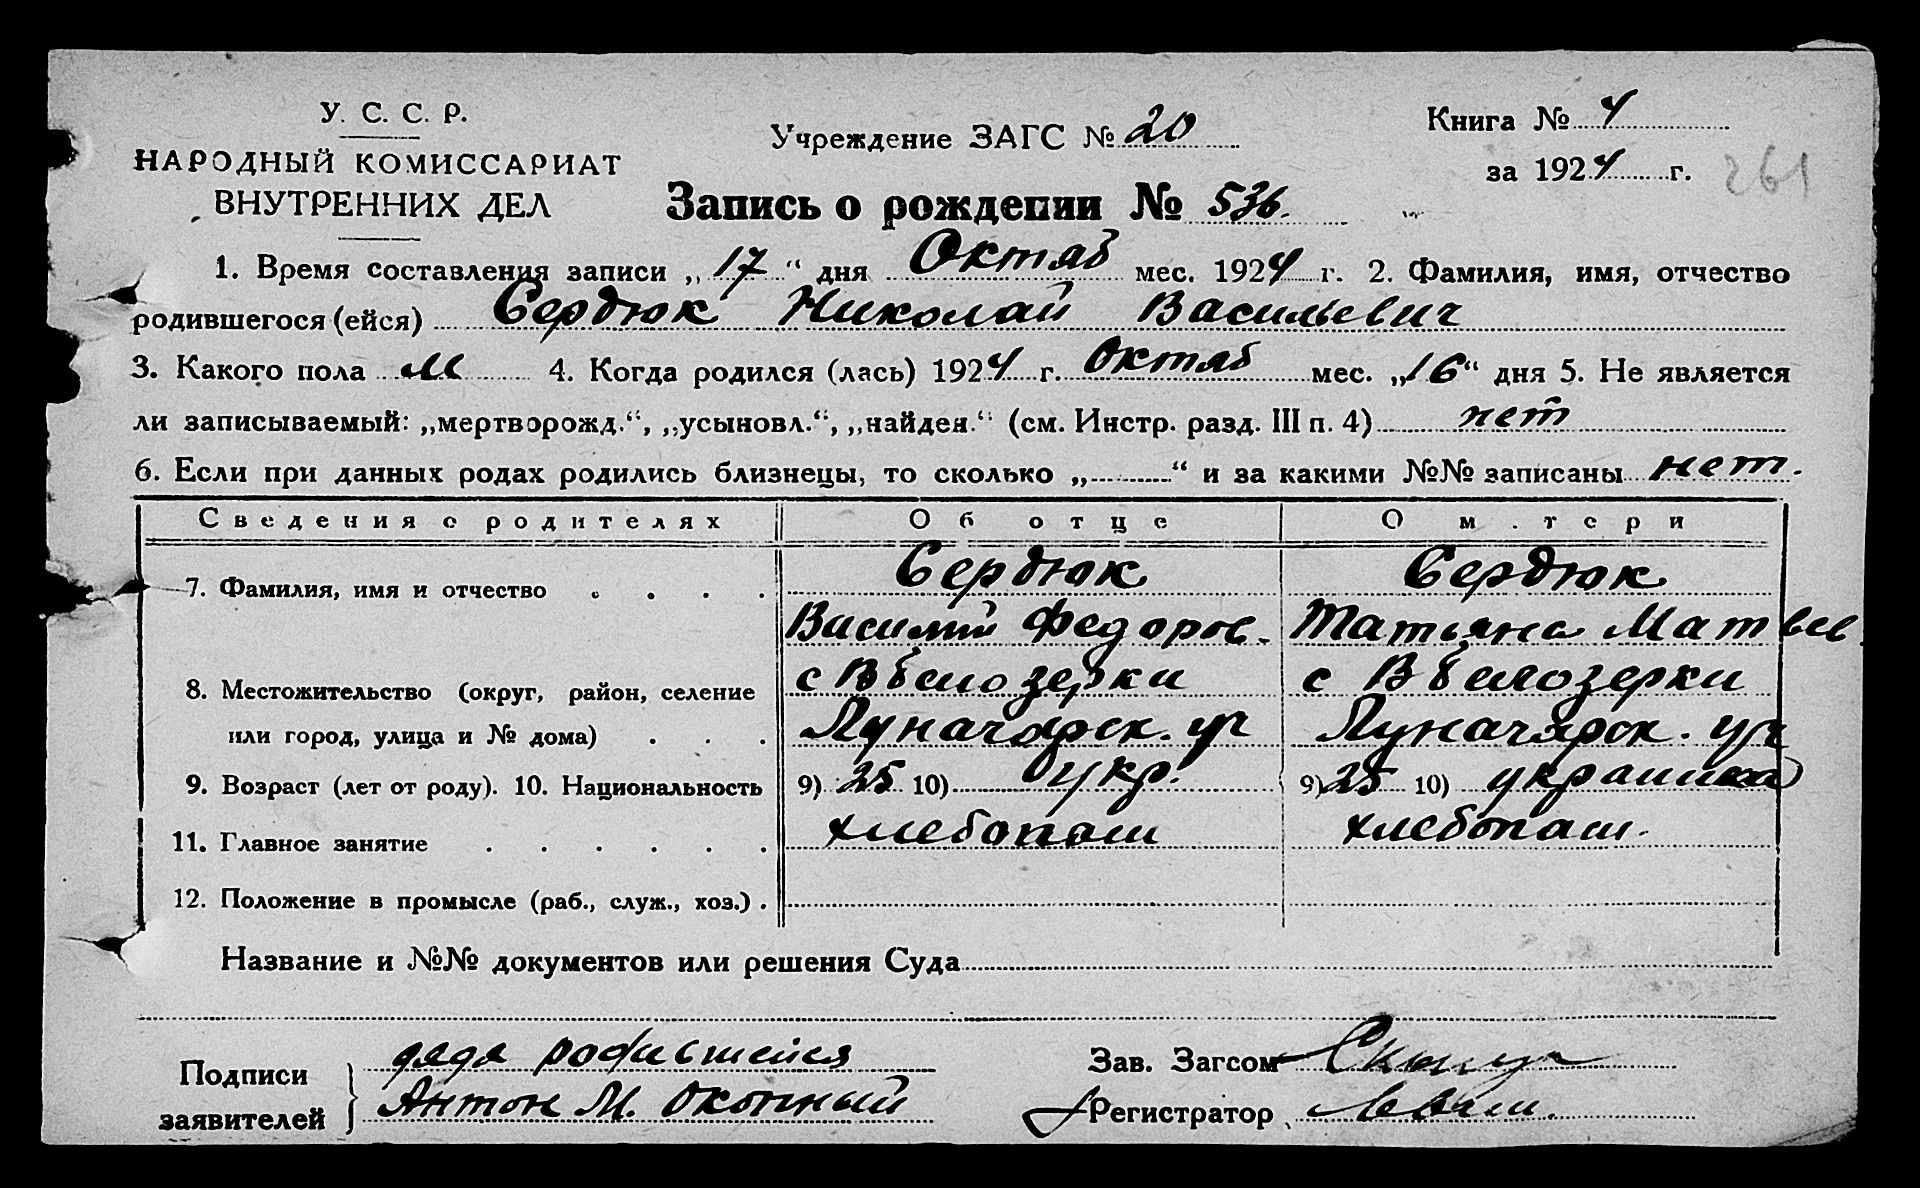 У. С. С. Р.
НАРОДНЫЙ КОМИССАРИАТ
ВНУТРЕННИХ ДЕЛ
Учреждение ЗАГС № 20
Книга № 4
за 1924 г.
261
Запись о рождении № 536.
1. Время составления записи „17“ дня Октяб мес. 1924 г. 2. Фамилия, имя, отчество
родившегося (ейся) Сердюк Николай Васильевич
3. Какого пола М 4. Когда родился (лась) 1924 г. Октяб мес. „16“ дня 5. Не является
ли записываемый: „мертворожд.“, „усыновл.“, „найден.“ (см. Инстр. разд. III п. 4) нет
6. Если при данных родах родились близнецы, то сколько „ “ и за какими №№ записаны нет.
Сведения о родителях Об отце О матери
7. Фамилия, имя и отчество Сердюк Сердюк
Василий Федоров. Татьяна Матвев.
8. Местожительство (округ, район, селение с В белозерки с В белозерки
или город, улица и № дома) Луначарск. ул Луначарск. ул
9. Возраст (лет от роду). 10. Национальность 9) 25 10) укр. 9) 25 10) украинка
11. Главное занятие хлебопаш хлебопаш.
12. Положение в промысле (раб., служ., хоз.)
Название и №№ документов или решения Суда
Подписи
заявителей
дядя
Антон М. Окопный
Зав. Загсом
Регистратор